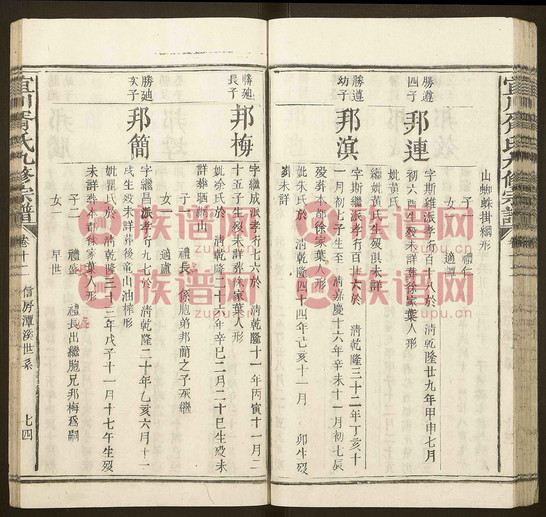 山蜘蛛掛網形
子一 禮仁
女一 適譚
勝遵
四子
邦連
字斯維派孝行百十八於 清乾隆廿九年甲申七月
初六酉生歿未詳葬徐家葉人形
妣黄氏
繼妣黄氏生歿俱未詳
勝遵
幼子
邦滨
字斯繼派孝行百廿六於 清乾隆三十二年丁亥十
一月初七子生至 清嘉慶十六年辛未十一月初七辰
歿葬本都徐家葉人形
妣朱氏於 清乾隆四十四年己亥十一月 卯生歿
未詳
勝廸
長子
邦梅
字繼成派孝行七六於 清乾隆十一年丙寅十一月二
十五子生歿未詳葬徐家葉人形
妣徐氏於 清乾隆二十六年辛巳二月二十巳生歿未
詳葬駟
子一 禮長 係胞弟邦簡之子承繼
女一 適盧
勝廸
次子
邦簡
字繼昌派孝行九七於 清乾隆二十年乙亥六月十一
戌生歿未詳葬後竜山油榨形
妣瞿氏於 清乾隆三十三年戊子十一月十七午生歿
未詳葬本都徐家葉人形
子二 禮長出繼胞兄邦梅爲嗣
禮盛
女一 早世
宜川胥氏九修宗譜
卷十二
信房潭溪世系
七四
族谱网
zupu.cn